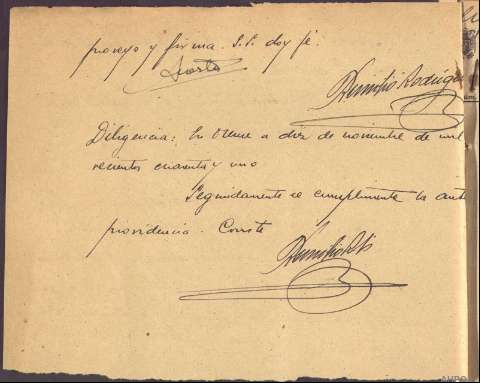 proveyo y firma S.S. doy fé.
Remihio Rodrígu
Diligencia: En a diez de noviembre de mil
vecientos cuarenta y uno
Seguidamente se cumplimenta la ante
providencia. Conste